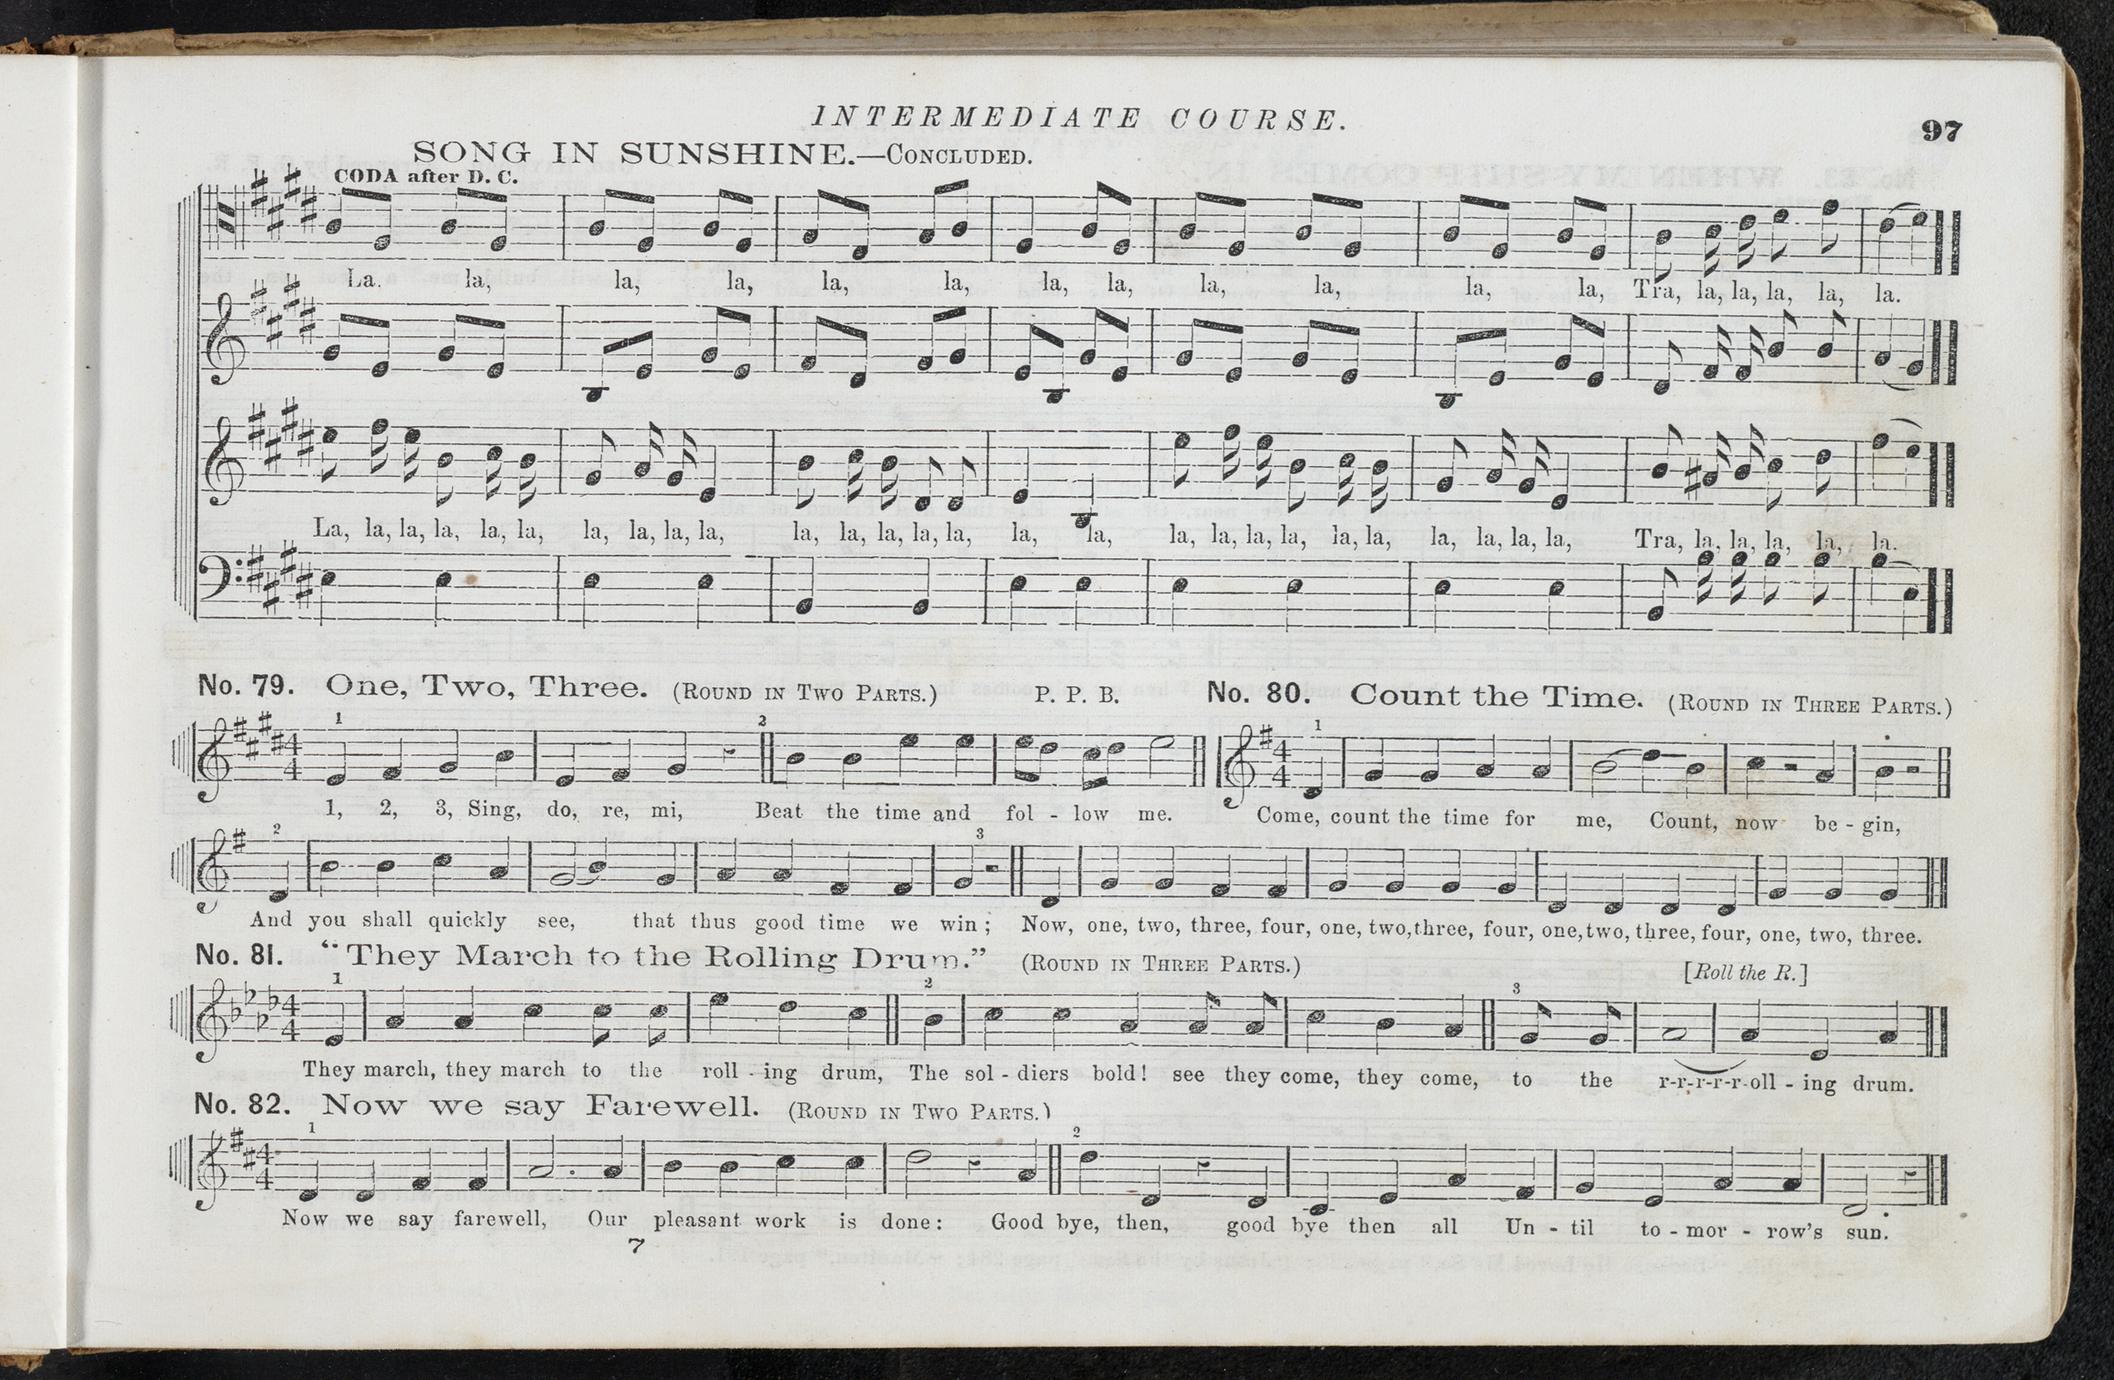 INTERMEDIATE COURSE.
97
SONG IN SUNSHINE.—CONCLUDED.
CODA after D. C.
La. la, la, la, la, la, la, la, la, la, la, la, Tra, la, la, la, la, la.
La, la, la, la, la, la, la, la, la, la, la, la, la, la, la, la, la, la, la, la, la, la, la, la, la, la, la, Tra, la, la, la, la, la.
No. 79. One, Two, Three. (ROUND IN TWO PARTS.) P. P. B.
1 2
4
4
1, 2, 3, Sing, do, re, mi, Beat the time and fol - low me.
No. 80. Count the Time. (ROUND IN THREE PARTS.)
1
4
4
Come, count the time for me, Count, now be - gin,
2 3
And you shall quickly see, that thus good time we win; Now, one, two, three, four, one, two, three, four, one, two, three, four, one, two, three.
No. 81. "They March to the Rolling Drum." (ROUND IN THREE PARTS.) [Roll the R.]
1 2 3
4
4
They march, they march to the roll - ing drum, The sol - diers bold! see they come, they come, to the r-r-r-r-r-oll - ing drum.
No. 82. Now we say Farewell. (ROUND IN TWO PARTS.)
1 2
4
4
Now we say farewell, Our pleasant work is done: Good bye, then, good bye then all Un - til to - mor - row's sun.
7